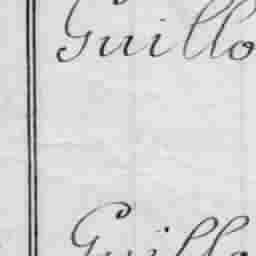 Guillo
Guillo